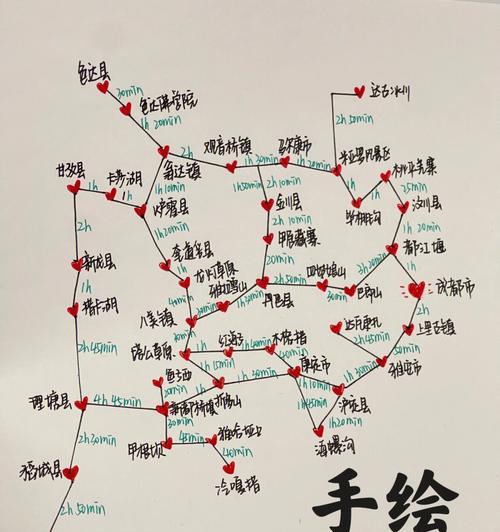 色达县
30min
色达佛学院
1h 20min
达古冰川
2h 50min
翁达镇
2h
观音桥镇
1h 30min
马尔康市
1h 20min
桃坪羌寨
25min
汶川县
甘孜县
1h
卡莎湖
1h
炉霍县
1h 10min
1h50min
2h 10min
金川县
1h
毕棚沟
1h
1h 20min
2h
1h
2h 10min
甲居藏寨
都江堰
新龙县
20min
3h 20min
1h
1h
丹巴县
2h 30min
四姑娘山
巴朗山
成都市
措卡湖
40min
1h
八美镇
30min
红海子
1h 40min
木格措
达瓦更扎
2h 45min
2h
上里古镇
2h45min
1h15min
康定市
50min
雅安市
理塘县
4h 45min
30min
1h
1h 30min
1h
1h45min
泸定县
1h
新都桥镇
折多山
1h20min
2h30min
30min
甲根坝
45min
雅哈垭口
海螺沟
40min
稻城县
冷嘎措
2h 50min
手绘